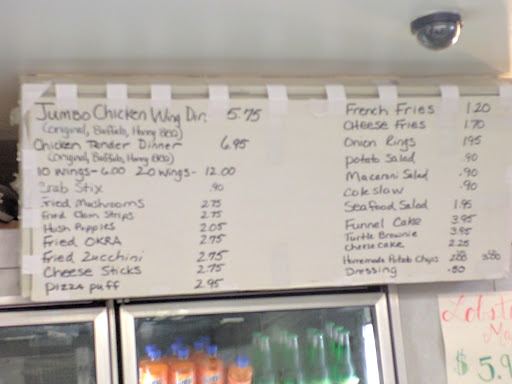 Jumbo Chicken Wing Din. 5.75
(original, Buffalo, Honey BBQ)
Chicken Tender Dinner 6.95
(original, Buffalo, Honey BBQ)
10 wings- 6.00 20 wings- 12.00
Crab Stix .90
Fried Mushrooms 2.75
Fried Clam Strips 2.75
Hush Puppies 2.05
Fried OKRA 2.75
Fried Zucchini 2.75
Cheese Sticks 2.75
Pizza puff 2.95
French Fries 1.20
Cheese Fries 1.70
Onion Rings 1.95
potato Salad .90
Macaroni Salad .90
Coleslaw .90
Seafood Salad 1.95
Funnel Cake 3.95
Turtle Brownie 3.95
Cheesecake 2.25
Homemade Potato Chips
Dressing .50
$5.9